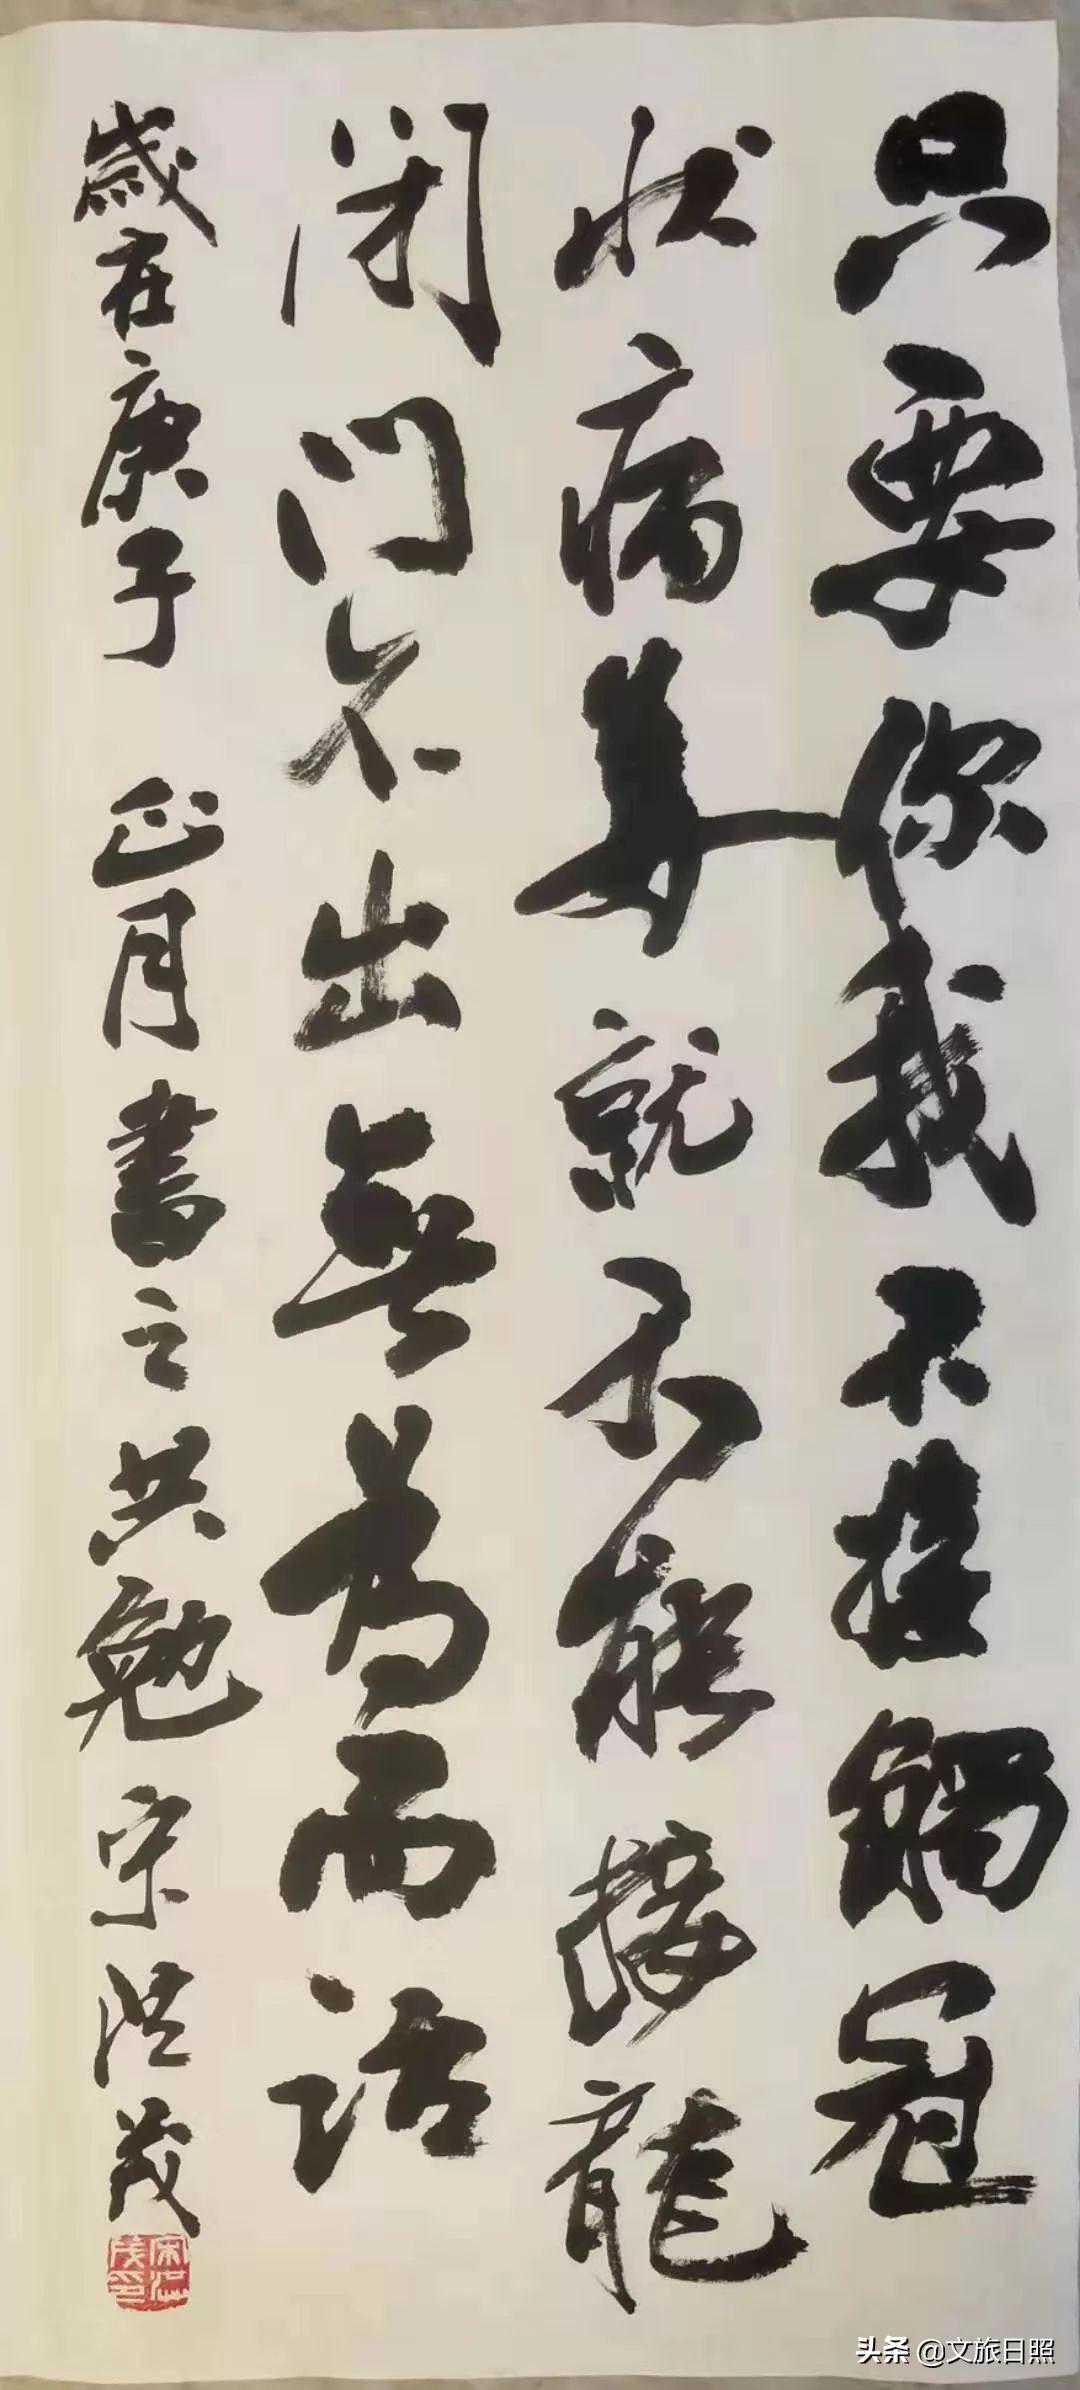 只要你我不接觸冠
状病毒就不能接龍
闭门不出無为而话
歲在庚子 正月書之共勉 宋洪茂
宋洪茂印
头条 @文旅日照